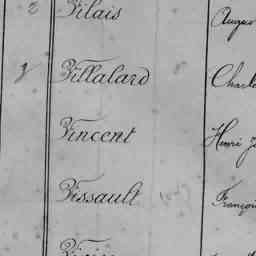 2 Vilais Augus
Villalard Charle
Vincent Henri J
Vissault François